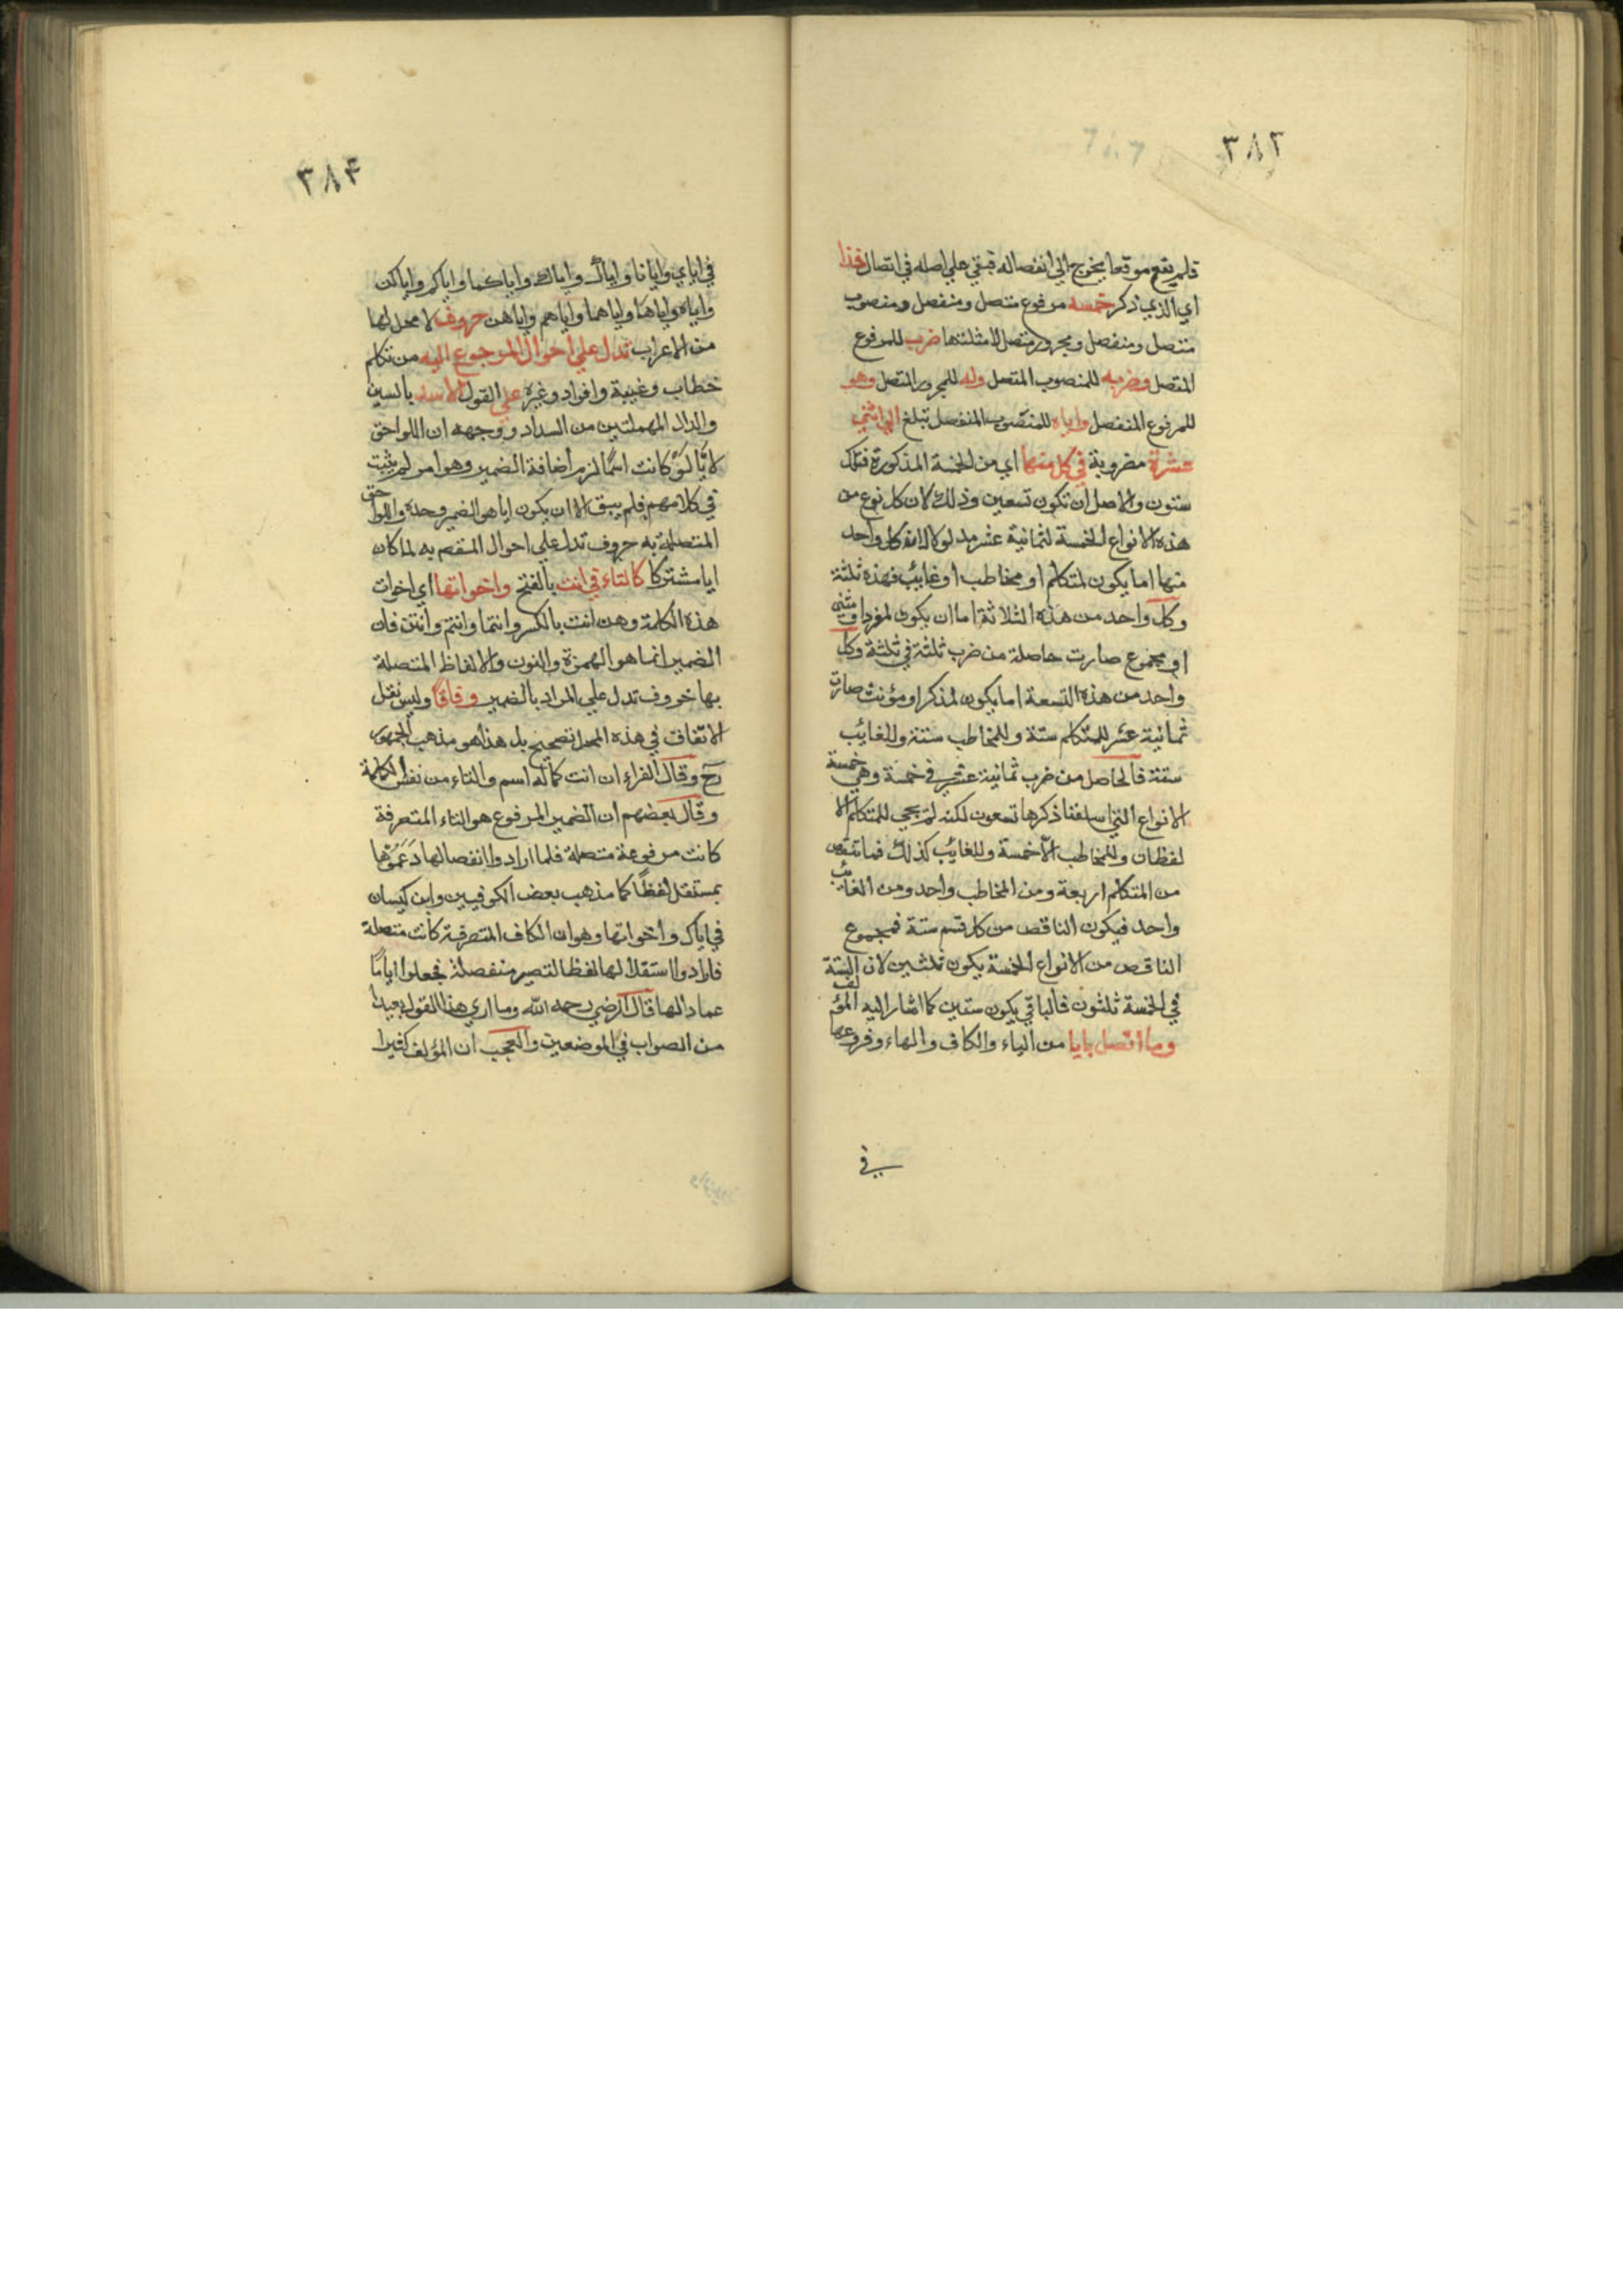 ٣٨٢
فلم يقع موقعا يخرج الي انفصاله فبقي علي اصله في اتصال فذا
اي الذي ذكر خمسه مرفوع متصل ومنفصل ومنصوب
متصل ومنفصل ومجرور متصل لامثلتها ضرب للمرفوع
المتصل وضربه للمنصوب المتصل وله للمجرور المتصل وهو
للمرفوع المنفصل واياه للمنصوب المنفصل تبلغ الي اثني
عشرة مضروبة في كل منها اي من الخمسة المذكورة فتلك
ستون والاصل ان تكون تسعين وذلك لان كل نوع من
هذه الانواع الخمسة لثمانية عشر مدلولا لانه كل واحد
منها اما يكون لمتكلم او مخاطب او غايب فهذه ثلثة
وكل واحد من هذه الثلاثة اما ان يكون لمفرد او مثني
او مجموع صارت حاصلة من ضرب ثلثة في ثلثة وكل
واحد من هذه التسعة اما يكون لمذكر او مؤنث صارت
ثمانية عشر للمتكلم ستة وللمخاطب ستة وللغايب
ستة فالحاصل من ضرب ثمانية عشر في خمسة وهي خمسة
الانواع التي اسلفنا ذكرها تسعون لكنه لم يجي للمتكلم الا
لفظان وللمخاطب الّا خمسة وللغايب كذلك فما تنقص
من المتكلم اربعة ومن المخاطب واحد ومن الغايب
واحد فيكون الناقص من كل قسم ستة فمجموع
الناقص من الانواع الخمسة يكون ثلثين لان الستة
في الخمسة ثلثون فالباقي يكون ستين كما اشار اليه المؤلف
وما اتصل بايا من الياء والكاف والهاء وفروعها
في
٣٨٤
في اياي وايانا واياك واياك واياكما واياكم واياكن
واياه واياها واياهما واياهم واياهن حروف لا محل لها
من الاعراب تدل علي احوال المرجوع اليه من تكلم
خطاب وغيبة وافراد وغيره علي القول الاسد بالسين
والدال المهملتين من السداد ووجهه ان اللواحق
لايّا لو كانت اسمًا لزم اضافة الضمير وهو امر لم يثبت
في كلامهم فلم يبق الا ان يكون ايا هو الضمير وحده واللواحق
المتصلة به حروف تدل علي احوال المقصم به لما كان
ايا مشتركا كالتاء في انت بالفتح واخواتها اي اخوات
هذه الكلمة وهن انت بالكسر وانتما وانتم وانتن فان
الضمير انما هو الهمزة والنون والالفاظ المتصلة
بها حروف تدل علي المراد بالضمير وفاقًا وليس نقل
الاتفاق في هذه المحل تصحيح بل هذا هو مذهب الجمهور
رح وقال الفراء ان انت كماله اسم والتاء من نفس الكلمة
وقال بعضهم ان الضمير المرفوع هو التاء المتصرفة
كانت مرفوعة متصلة فلما ارادوا انفصالها دعموها
بمستقل لفظًا كما مذهب بعض الكوفيين وابن كيسان
في اياك واخواتها وهو ان الكاف المتصرفة كانت متصلة
فارادوا استقلالها لفظا لتصير منفصلة فجعلوا اياها
عمادا لها قال الرضي رحمه الله وما اري هذا القول بعيدا
من الصواب في الموضعين والعجب ان المؤلف كثيرا